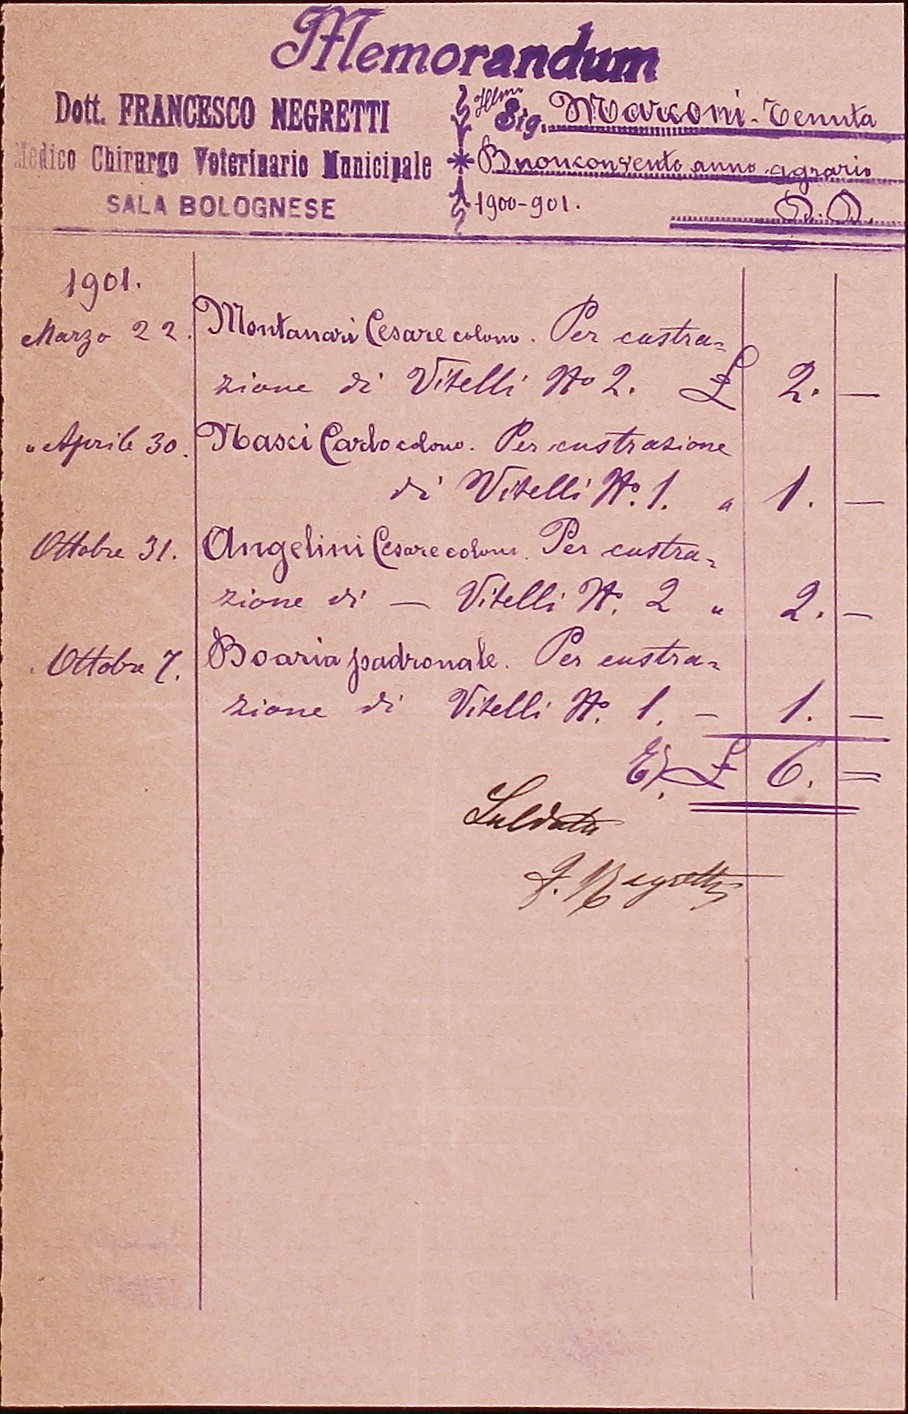 Memorandum
Dott. FRANCESCO NEGRETTI
Medico Chirurgo Veterinario Municipale
SALA BOLOGNESE
Illmo Sig. Marconi - Tenuta
Buonconvento anno agrario
1900-901. D. D.
1901.
Marzo 22. Montanari Cesare colono. Per castra=
zione di Vitelli No 2. £ 2. —
" Aprile 30. Nasci Carlo colono. Per castrazione
di Vitelli No. 1. " 1. —
Ottobre 31. Angelini Cesare colono. Per castra=
zione di — Vitelli N. 2 " 2. —
Ottobre 7. Boaria padronale. Per castra=
zione di Vitelli N. 1. — 1. —
£ 6. =
Saldato
F. Negretti